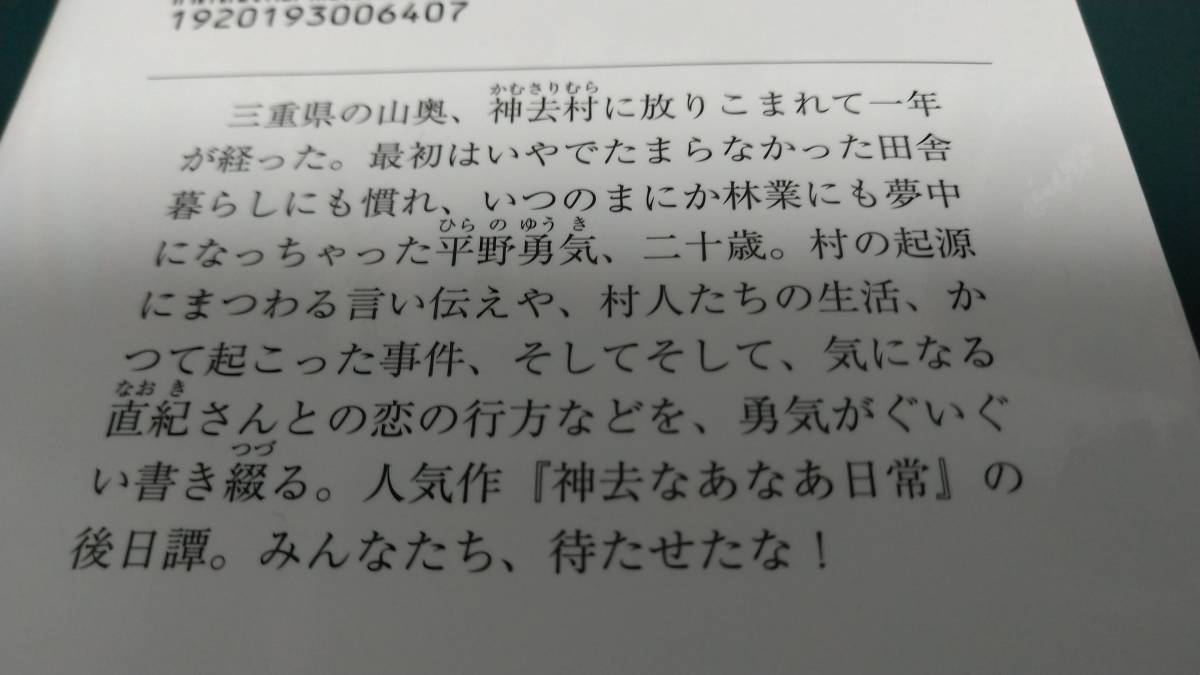 1920193006407
かむさりむら
三重県の山奥、神去村に放りこまれて一年
が経った。最初はいやでたまらなかった田舎
暮らしにも慣れ、いつのまにか林業にも夢中
ひらのゆうき
になっちゃった平野勇気、二十歳。村の起源
にまつわる言い伝えや、村人たちの生活、か
つて起こった事件、そしてそして、気になる
なおき
直紀さんとの恋の行方などを、勇気がぐいぐ
つづ
い書き綴る。人気作『神去なあなあ日常』の
後日譚。みんなたち、待たせたな！